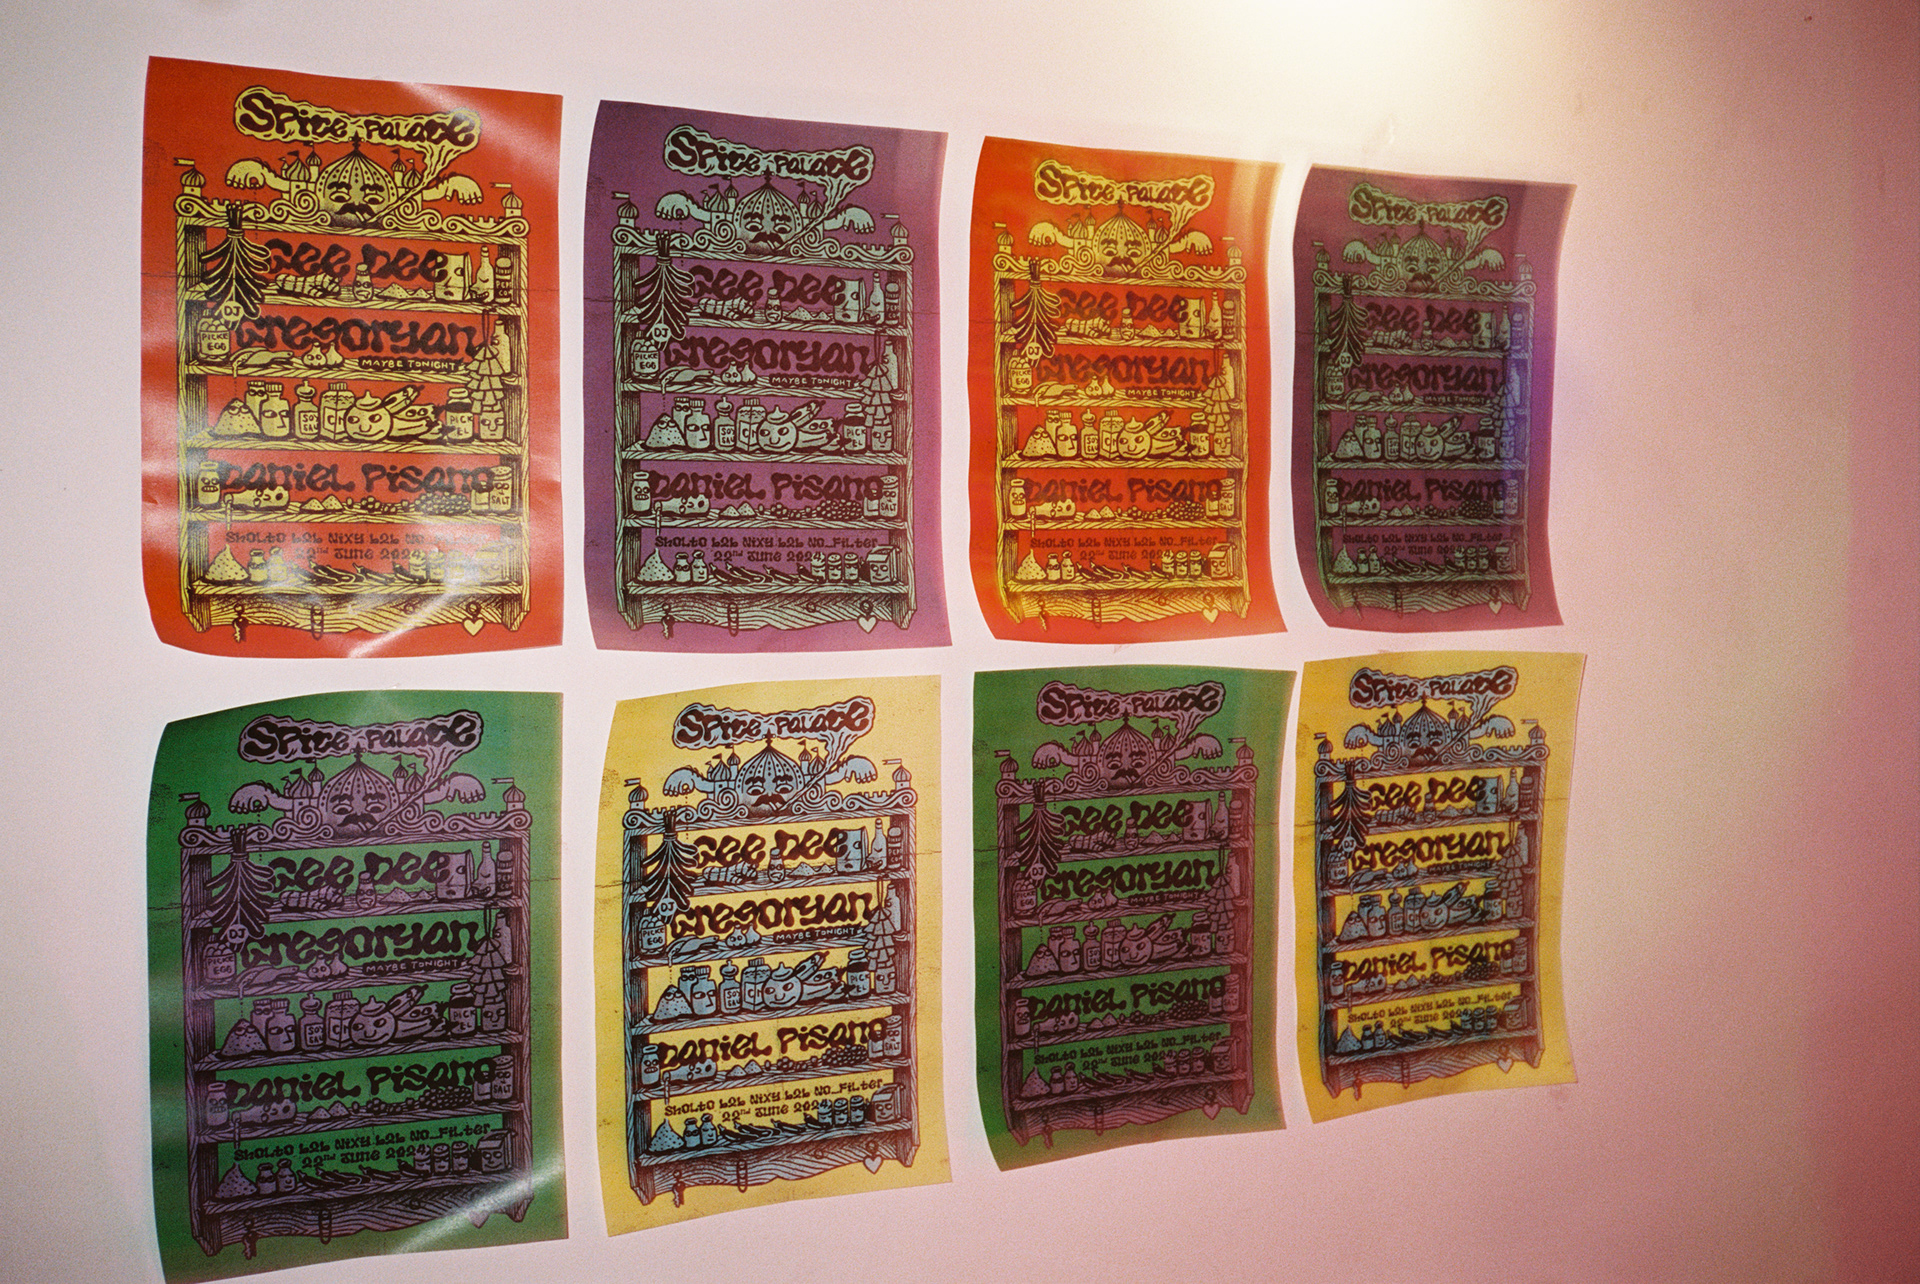 Spice Palace
Gee Dee
PEP
COR
DJ
Gregoryan
PICKE
EGG
MAYBE TONIGHT
SOY
SAU
PICK
EL
Daniel Pisano
SALT
Sholto b2b Nixy b2b No_Filter
22nd June 2024
Spice Palace
Gee Dee
DJ
Gregoryan
PICKE
EGG
MAYBE TONIGHT
SOY
SAU
PICK
EL
Daniel Pisano
SALT
Sholto b2b Nixy b2b No_Filter
22nd June 2024
Spice Palace
Gee Dee
DJ
Gregoryan
MAYBE TONIGHT
Daniel Pisano
Sholto b2b Nixy b2b No_Filter
22nd June 2024
Spice Palace
Gee Dee
DJ
Gregoryan
MAYBE TONIGHT
Daniel Pisano
Sholto b2b Nixy b2b No_Filter
22nd June 2024
Spice Palace
Gee Dee
DJ
Gregoryan
PICKE
EGG
MAYBE TONIGHT
SOY
SAU
PICK
EL
Daniel Pisano
SALT
Sholto b2b Nixy b2b No_Filter
22nd June 2024
Spice Palace
Gee Dee
DJ
Gregoryan
PICKE
EGG
MAYBE TONIGHT
SOY
SAU
PICK
EL
Daniel Pisano
SALT
Sholto b2b Nixy b2b No_Filter
22nd June 2024
Spice Palace
Gee Dee
DJ
Gregoryan
MAYBE TONIGHT
Daniel Pisano
Sholto b2b Nixy b2b No_Filter
22nd June 2024
Spice Palace
Gee Dee
DJ
Gregoryan
MAYBE TONIGHT
Daniel Pisano
Sholto b2b Nixy b2b No_Filter
22nd June 2024